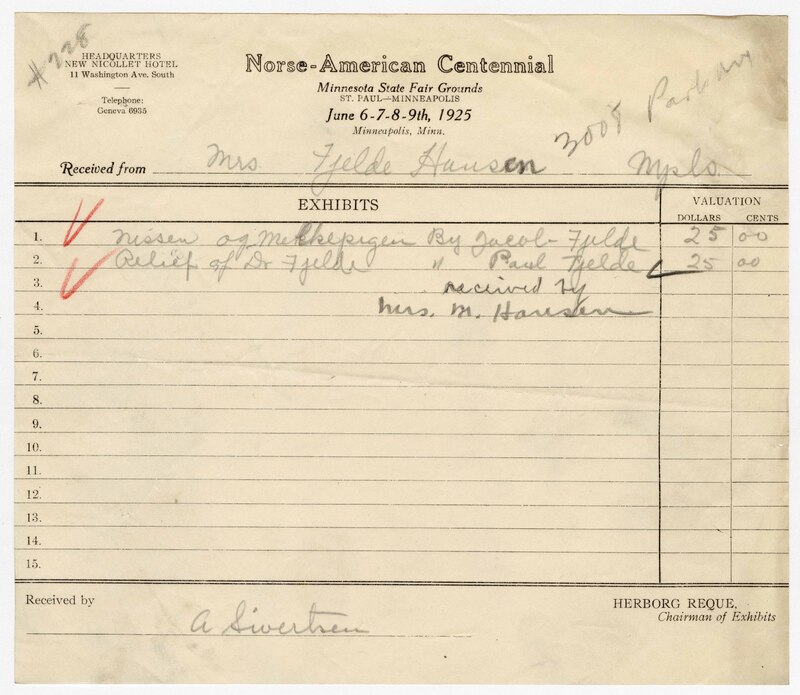 #228
HEADQUARTERS
NEW NICOLLET HOTEL
11 Washington Ave. South
Telephone:
Geneva 6935
Norse-American Centennial
Minnesota State Fair Grounds
ST. PAUL—MINNEAPOLIS
June 6-7-8-9th, 1925
Minneapolis, Minn.
3008 Park Av
Received from Mrs. Fjelde Hansen Mpls.
EXHIBITS
VALUATION
DOLLARS CENTS
1. Nissen og Melkepigen By Jacob Fjelde 25 00
2. Relief of Dr Fjelde " Paul Fjelde 25 00
3. received by
4. Mrs. M. Hansen
5.
6.
7.
8.
9.
10.
11.
12.
13.
14.
15.
Received by A Sivertsen
HERBORG REQUE,
Chairman of Exhibits